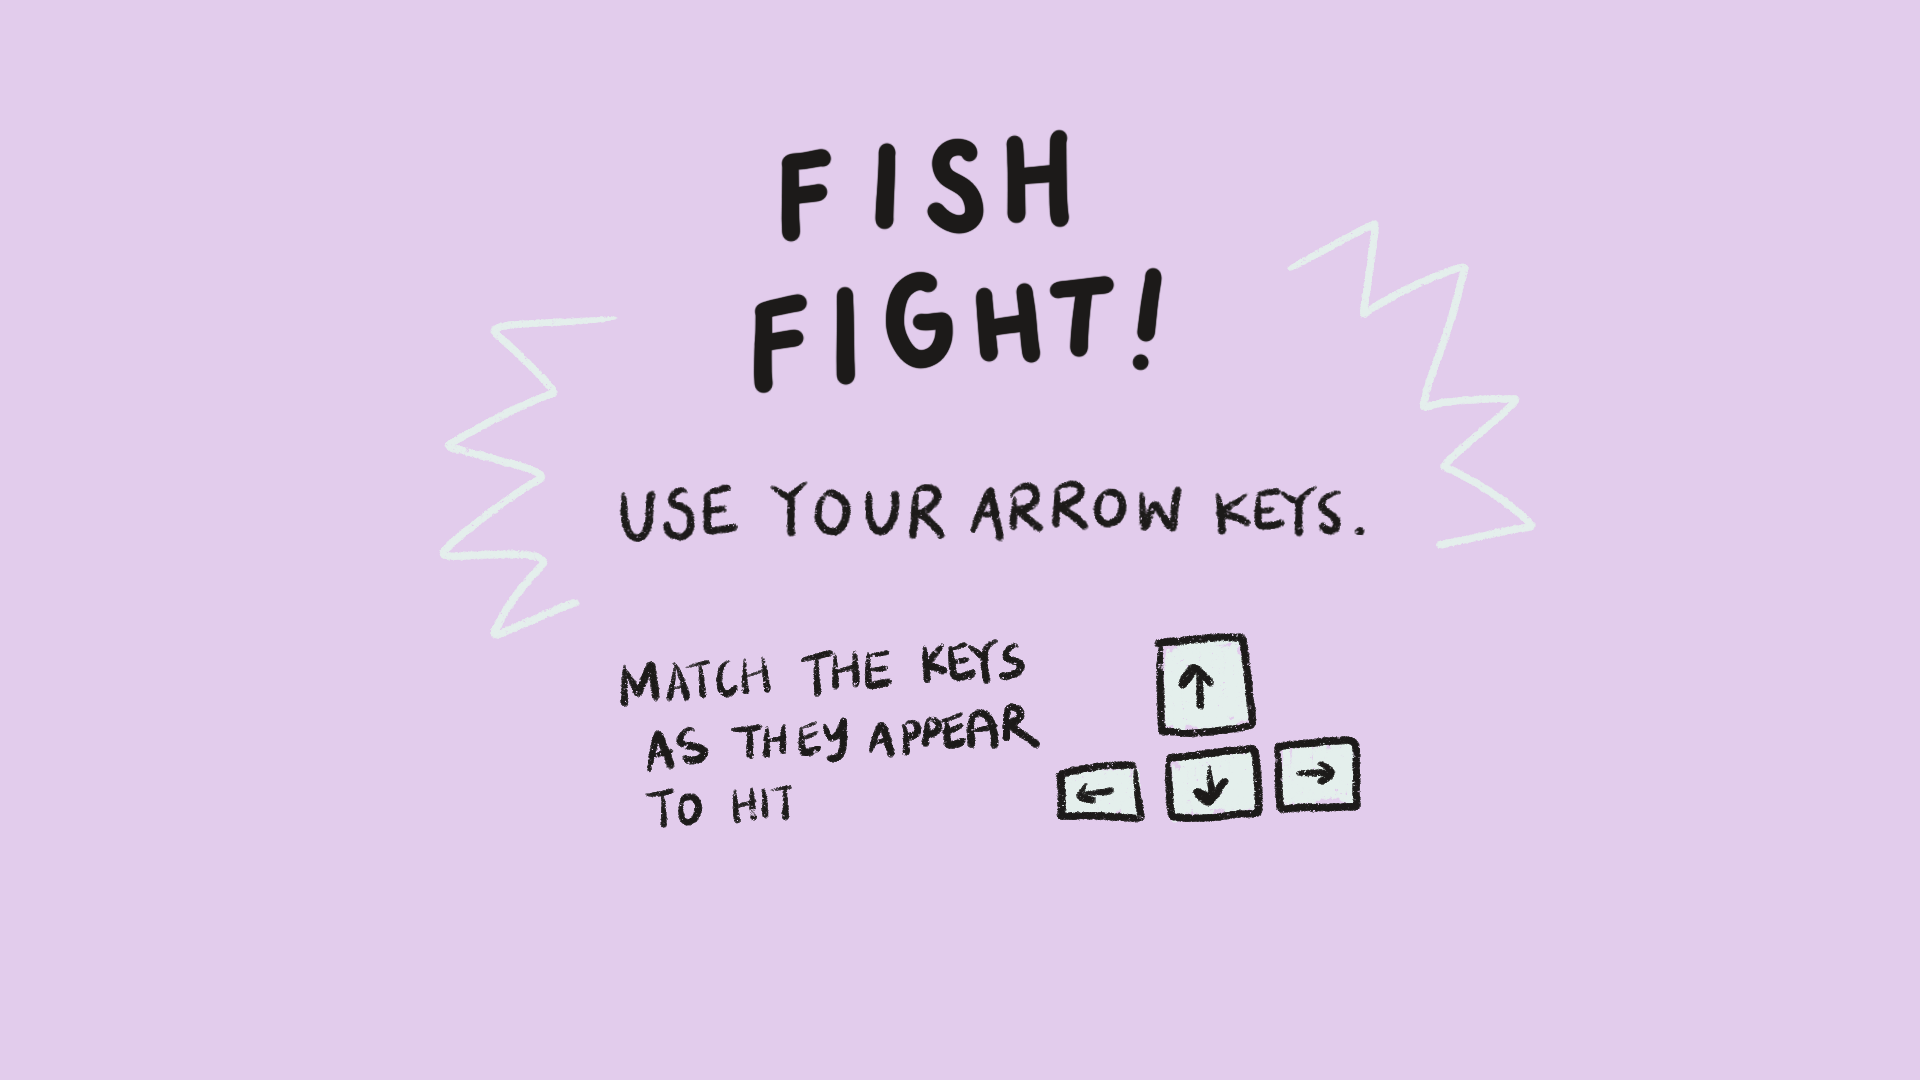 FISH
FIGHT!
USE YOUR ARROW KEYS.
MATCH THE KEYS
AS THEY APPEAR
TO HIT
↑
← ↓ →